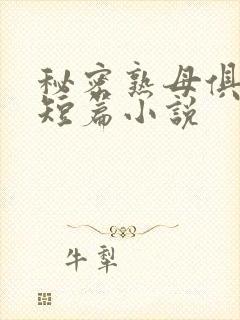 秘密熟母俱
短篇小説
牛犁